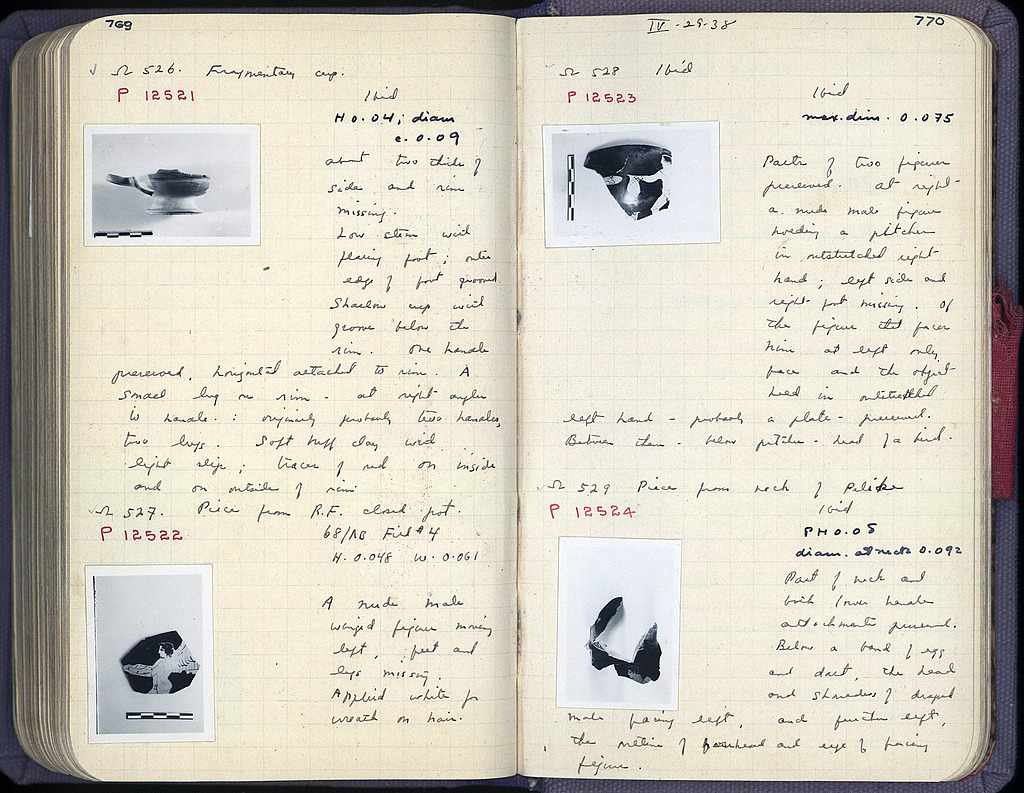 769
Ω 526. Fragmentary cup.
P 12521
Ibid
H 0.04; diam
c. 0.09
about two thirds of
side and rim
missing.
Low stem with
flaring foot; outer
edge of foot grooved.
Shallow cup with
groove below the
rim. One handle
preserved, horizontal attached to rim. A
small lug on rim - at right angles
to handle. : originally probably two handles,
two lugs. Soft buff clay with
light slip; traces of red on inside
and on outside of rim.
Ω 527. Piece from R.F. closed pot.
P 12522
68/ΛΒ Fill #4
H. 0.048 W. 0.061
A nude male
winged figure moving
left, feet and
legs missing.
Applied white for
wreath on hair.
IV - 29-38
770
Ω 528 Ibid
P 12523
Ibid
max. dim. 0.075
Parts of two figures
preserved. At right
a nude male figure
holding a pitcher
in outstretched right
hand; left side and
right foot missing. Of
the figure that faces
him at left only
face and the object
held in outstretched
left hand - probably a plate - preserved.
Between them - below pitcher - head of a bird.
Ω 529 Piece from neck of Pelike
P 12524
Ibid
PH 0.05
diam. at neck 0.092
Part of neck and
both lower handle
attachments preserved.
Below a band of egg
and dart, the head
and shoulders of draped
male facing left, and further left,
the outline of forehead and eye of facing
figure.